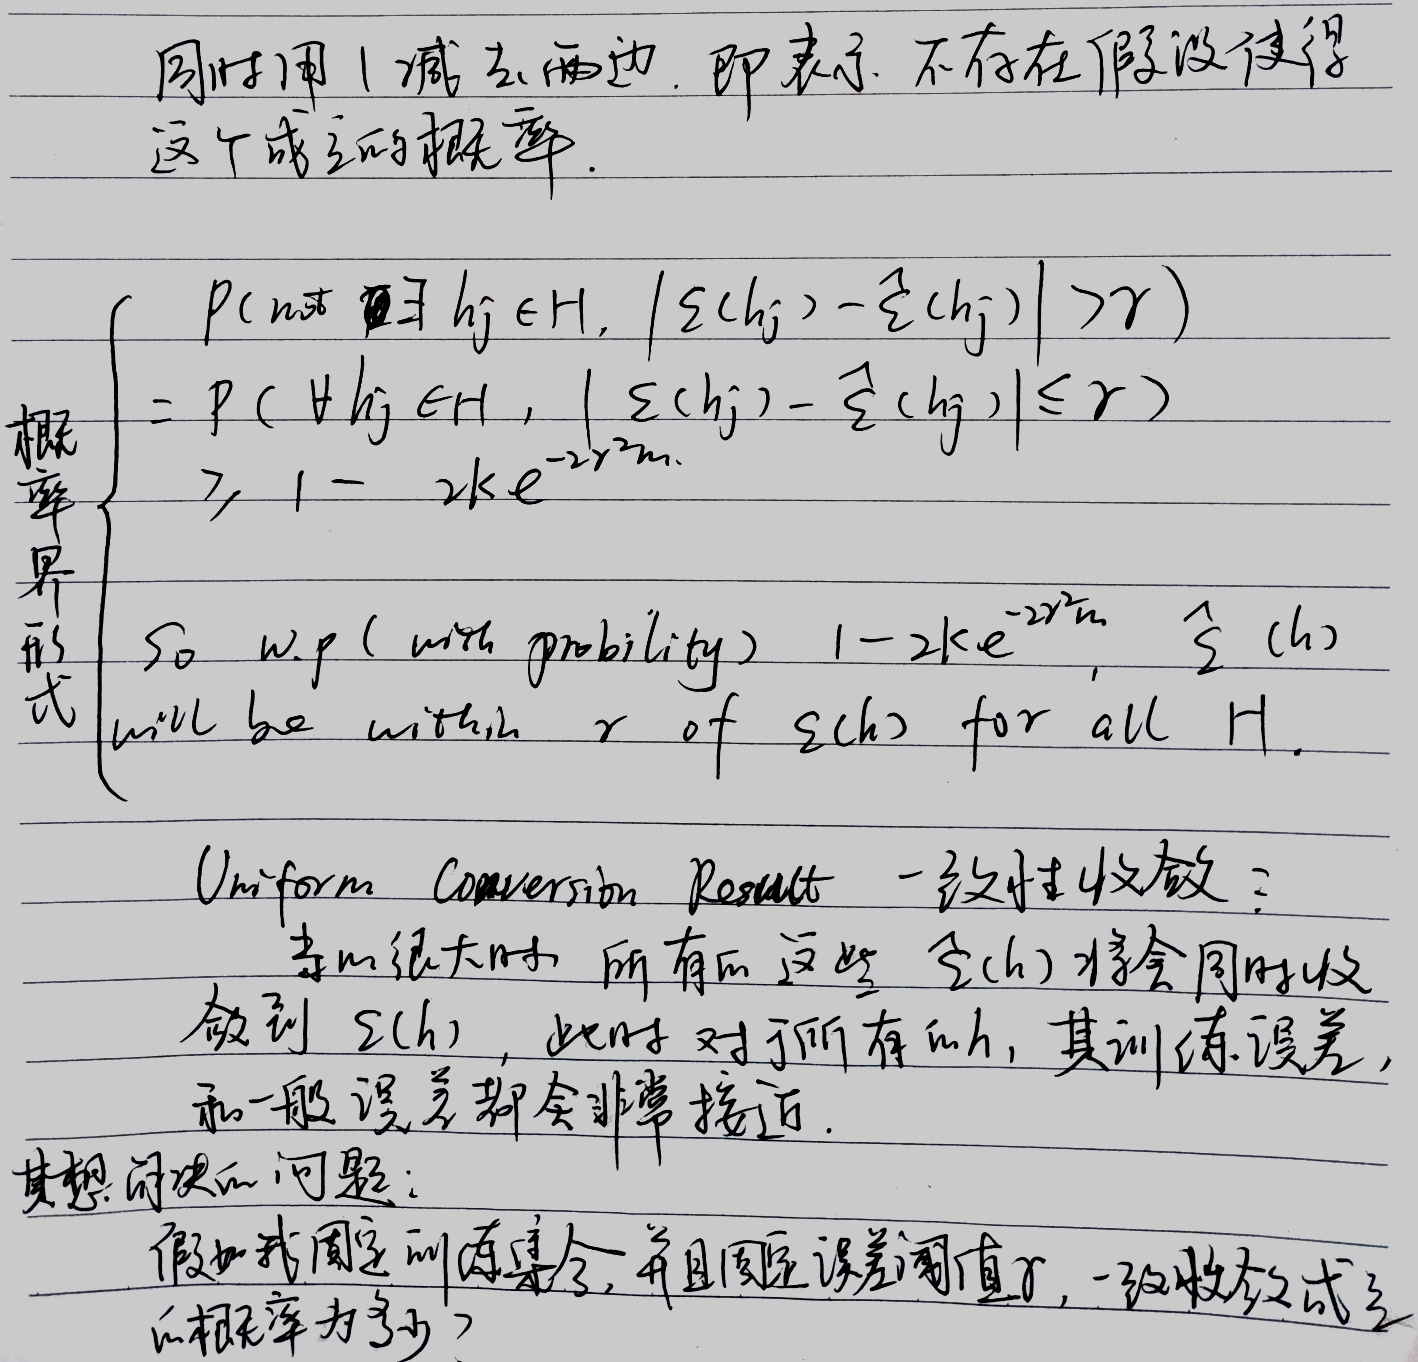 同时用1减去两边. 即表示. 不存在假设使得
这个成立的概率.
P(not ∃ hj ∈ H, |ε(hj) - ε̂(hj)| > γ)
= P(∀ hj ∈ H, |ε(hj) - ε̂(hj)| ≤ γ)
≥ 1 - 2ke^{-2γ²m}.
概率界形式
So w.p ( with probility) 1-2ke^{-2γ²m}, ε̂ (h)
will be within γ of ε(h) for all H.
Uniform Conversion Result 一致性收敛:
当m很大时 所有的这些 ε̂(h) 将会同时收
敛到 ε(h), 此时对于所有的h, 其训练误差,
和一般误差都会非常接近.
其想解决的问题:
假如我固定训练集合, 并且固定误差阈值γ, 一致收敛成立
的概率为多少?